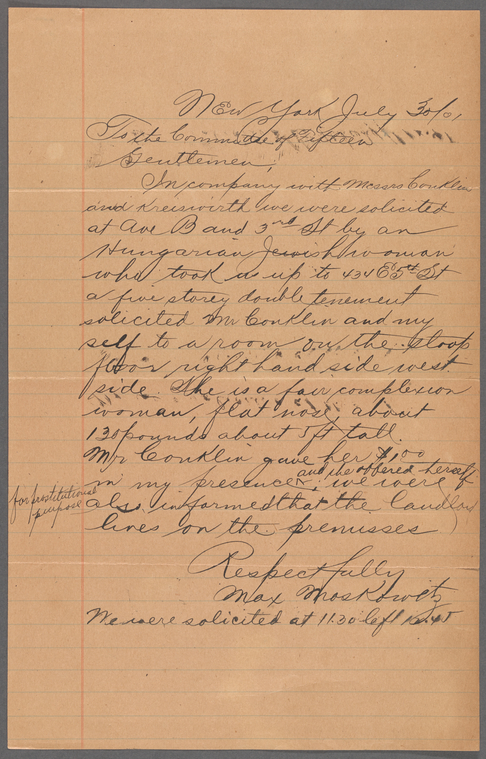 New York July 30/01
To the Committee of Fifteen
Gentlemen,
In company with Messrs Conklin
and Kreiswirth we were solicited
at Ave B and 3rd St by an
Hungarian Jewish woman
who took us up to 434 E 5th St
a five storey double tenement
solicited Mr Conklin and my
self to a room on the stoop
floor right hand side west
side. She is a fair complexion
woman, flat nose, about
130 pounds about 5 ft tall.
Mr Conklin gave her $1.00
and she offered herself
in my presence, we were
for prostitutional
purpose
also informed that the landlord
lives on the premisses
Respectfully
Max Moskowitz
We were solicited at 11.30 left 12.45